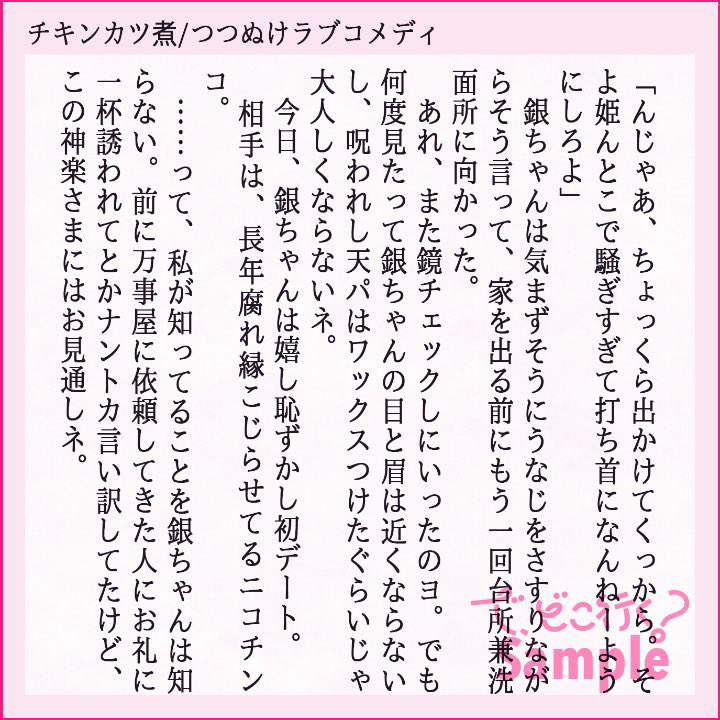 チキンカツ煮/つつぬけラブコメディ
「んじゃあ、ちょっくら出かけてくっから。そ
よ姫んとこで騒ぎすぎて打ち首になんねーよう
にしろよ」
　銀ちゃんは気まずそうにうなじをさすりなが
らそう言って、家を出る前にもう一回台所兼洗
面所に向かった。
　あれ、また鏡チェックしにいったのヨ。でも
何度見たって銀ちゃんの目と眉は近くならない
し、呪われし天パはワックスつけたぐらいじゃ
大人しくならないネ。
　今日、銀ちゃんは嬉し恥ずかし初デート。
　相手は、長年腐れ縁こじらせてるニコチン
コ。
　……って、私が知ってることを銀ちゃんは知
らない。前に万事屋に依頼してきた人にお礼に
一杯誘われてとかナントカ言い訳してたけど、
この神楽さまにはお見通しネ。
で、どこ行く?
Sample